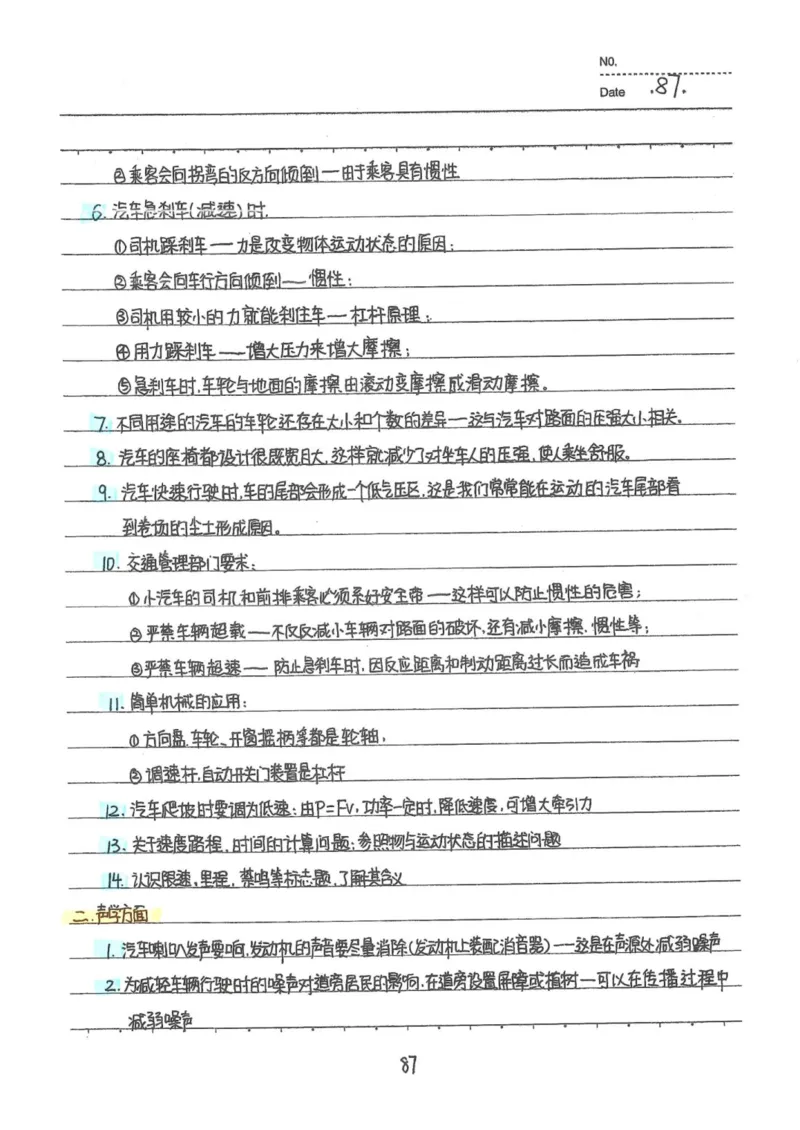 NO.
Date .87.
②乘客会向拐弯的反方向倾倒一由于乘客具有惯性
6. 汽车急刹车(减速)时,
①司机踩刹车——力是改变物体运动状态的原因;
②乘客会向车行方向倾倒——惯性;
③司机用较小的力就能刹住车—杠杆原理;
④用力踩刹车——增大压力来增大摩擦;
⑤急刹车时,车轮与地面的摩擦由滚动变摩擦成滑动摩擦。
7. 不同用途的汽车的车轮还存在大小和个数的差异—这与汽车对路面的压强大小相关。
8. 汽车的座椅都设计很既宽且大,这样就减少了对坐车人的压强,使人乘坐舒服。
9. 汽车快速行驶时,车的尾部会形成一个低气压区,这是我们常常能在运动的汽车尾部看
到卷扬的尘土形成原因。
10. 交通管理部门要求:
①小汽车的司机和前排乘客必须系好安全带——这样可以防止惯性的危害;
②严禁车辆超载——不仅仅减小车辆对路面的破坏,还有减小摩擦、惯性等;
③严禁车辆超速——防止急刹车时,因反应距离和制动距离过长而造成车祸
11. 简单机械的应用:
①方向盘、车轮、开窗摇柄等都是轮轴,
②调速杆,自动开关门装置是杠杆
12. 汽车爬坡时要调为低速:由P=Fv,功率一定时,降低速度,可增大牵引力
13. 关于速度路程,时间的计算问题;参照物与运动状态的描述问题
14. 认识限速,里程,禁鸣等标志题,了解其含义
二.声学方面
1. 汽车喇叭发声要响,发动机的声音要尽量消除(发动机上装配消音器)——这是在声源处减弱噪声
2. 为减轻车辆行驶时的噪声对道旁居民的影响,在道旁设置屏障或植树—可以在传播过程中
减弱噪声
87